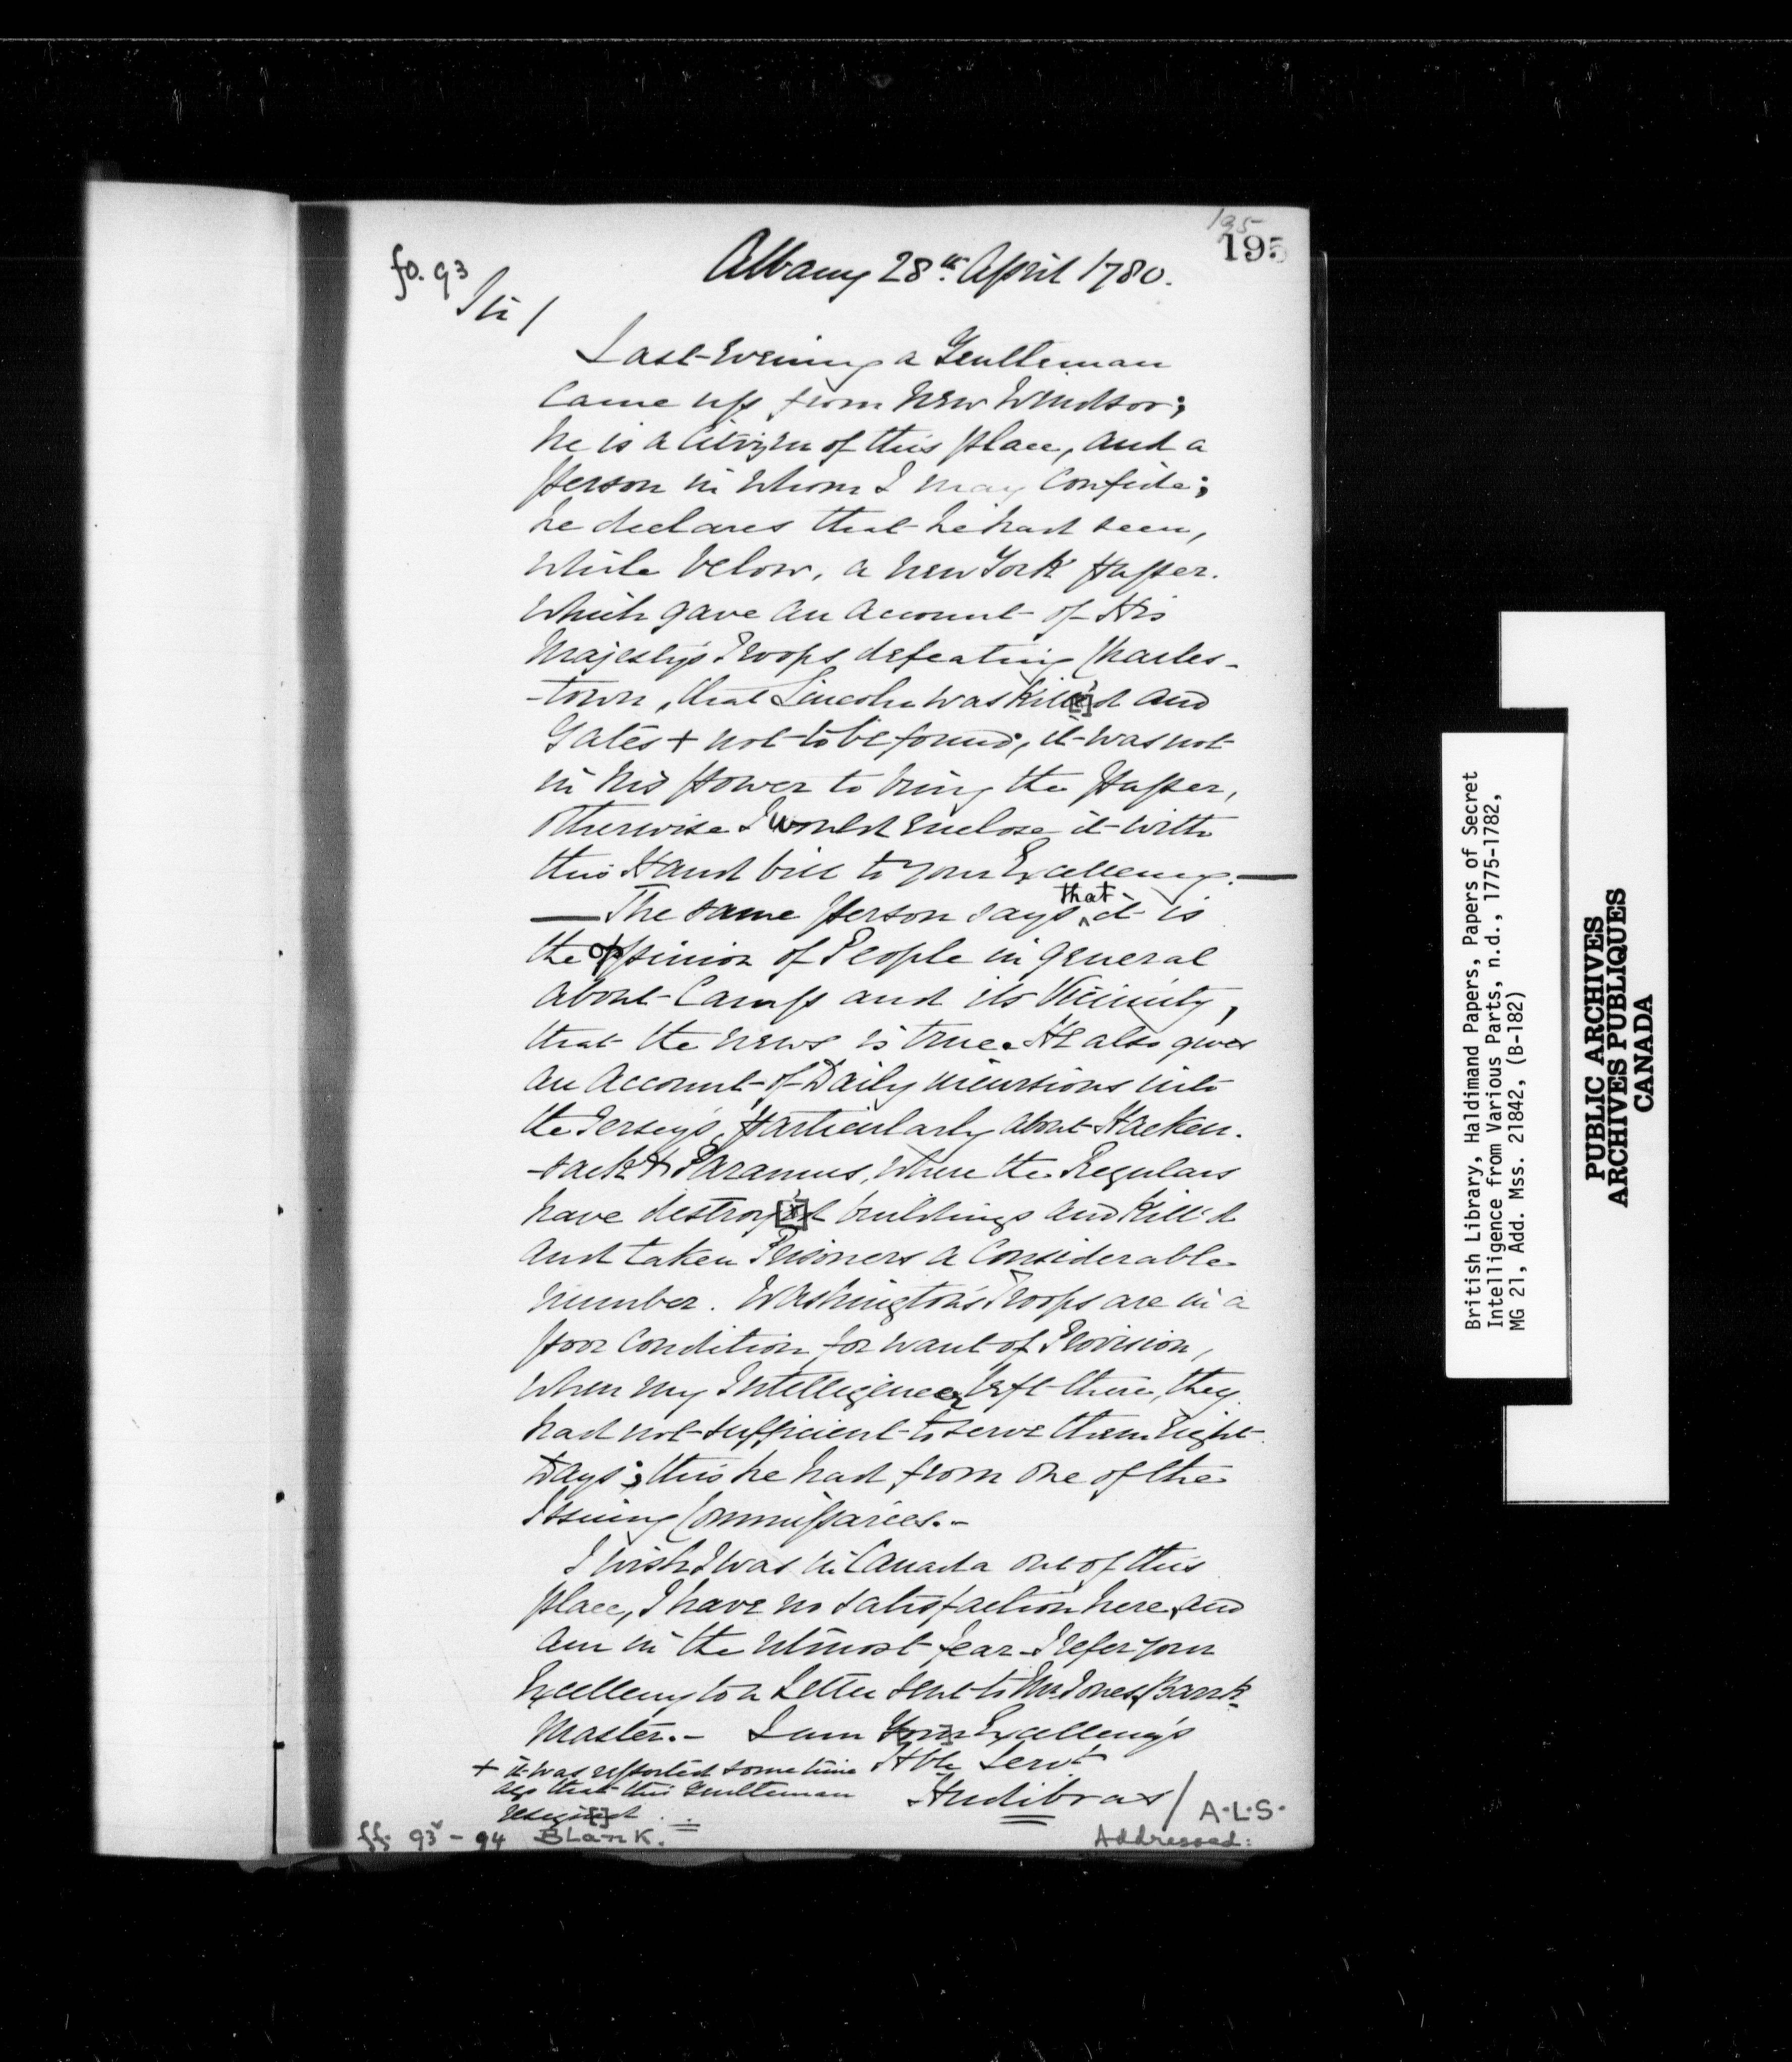 195
195
fo. 93
Albany 28th April 1780.
Sir /
Last Evening a Gentleman
Came up from New Windsor;
he is a Citizen of this place, and a
person in whom I may Confide;
he declares that he had seen,
while below, a New York paper.
which gave an account of His
Majesty's Troops defeating Charles-
-town, that Lincoln was kill'd and
Gates + not to be found, it was not
in his power to bring the paper,
otherwise I would enclose it with
this Hand bill to your Excellency. —
— The same person says that it is
the opinion of People in general
about Camp and its Vicinity,
that the news is true. He also gives
an account of Daily incursions into
the Jersey's, particularly about Hacken-
-sack & Paramus, where the Regulars
have destroy'd buildings and kill'd
and taken Prisoners a Considerable
number. Washington's Troops are in a
poor Condition for want of Provision,
when my Intelligencer left there, they
had not sufficient to serve them Eight
Days; this he had from one of the
Issuing Commissaries.-
I wish I was in Canada out of this
place, I have no satisfaction here, and
am in the utmost fear - I refer your
Excellency to a Letter sent to Mr. Jones, Barrk-
Master.- I am Your Excellency's
Hble Servt
Hudibras /
+ it was reported some time
ago that this Gentleman
resign'd
A.L.S.
ff. 93v - 94 Blank.
Addressed:
British Library, Haldimand Papers, Papers of Secret
Intelligence from Various Parts, n.d., 1775-1782,
MG 21, Add. Mss. 21842, (B-182)
PUBLIC ARCHIVES
ARCHIVES PUBLIQUES
CANADA